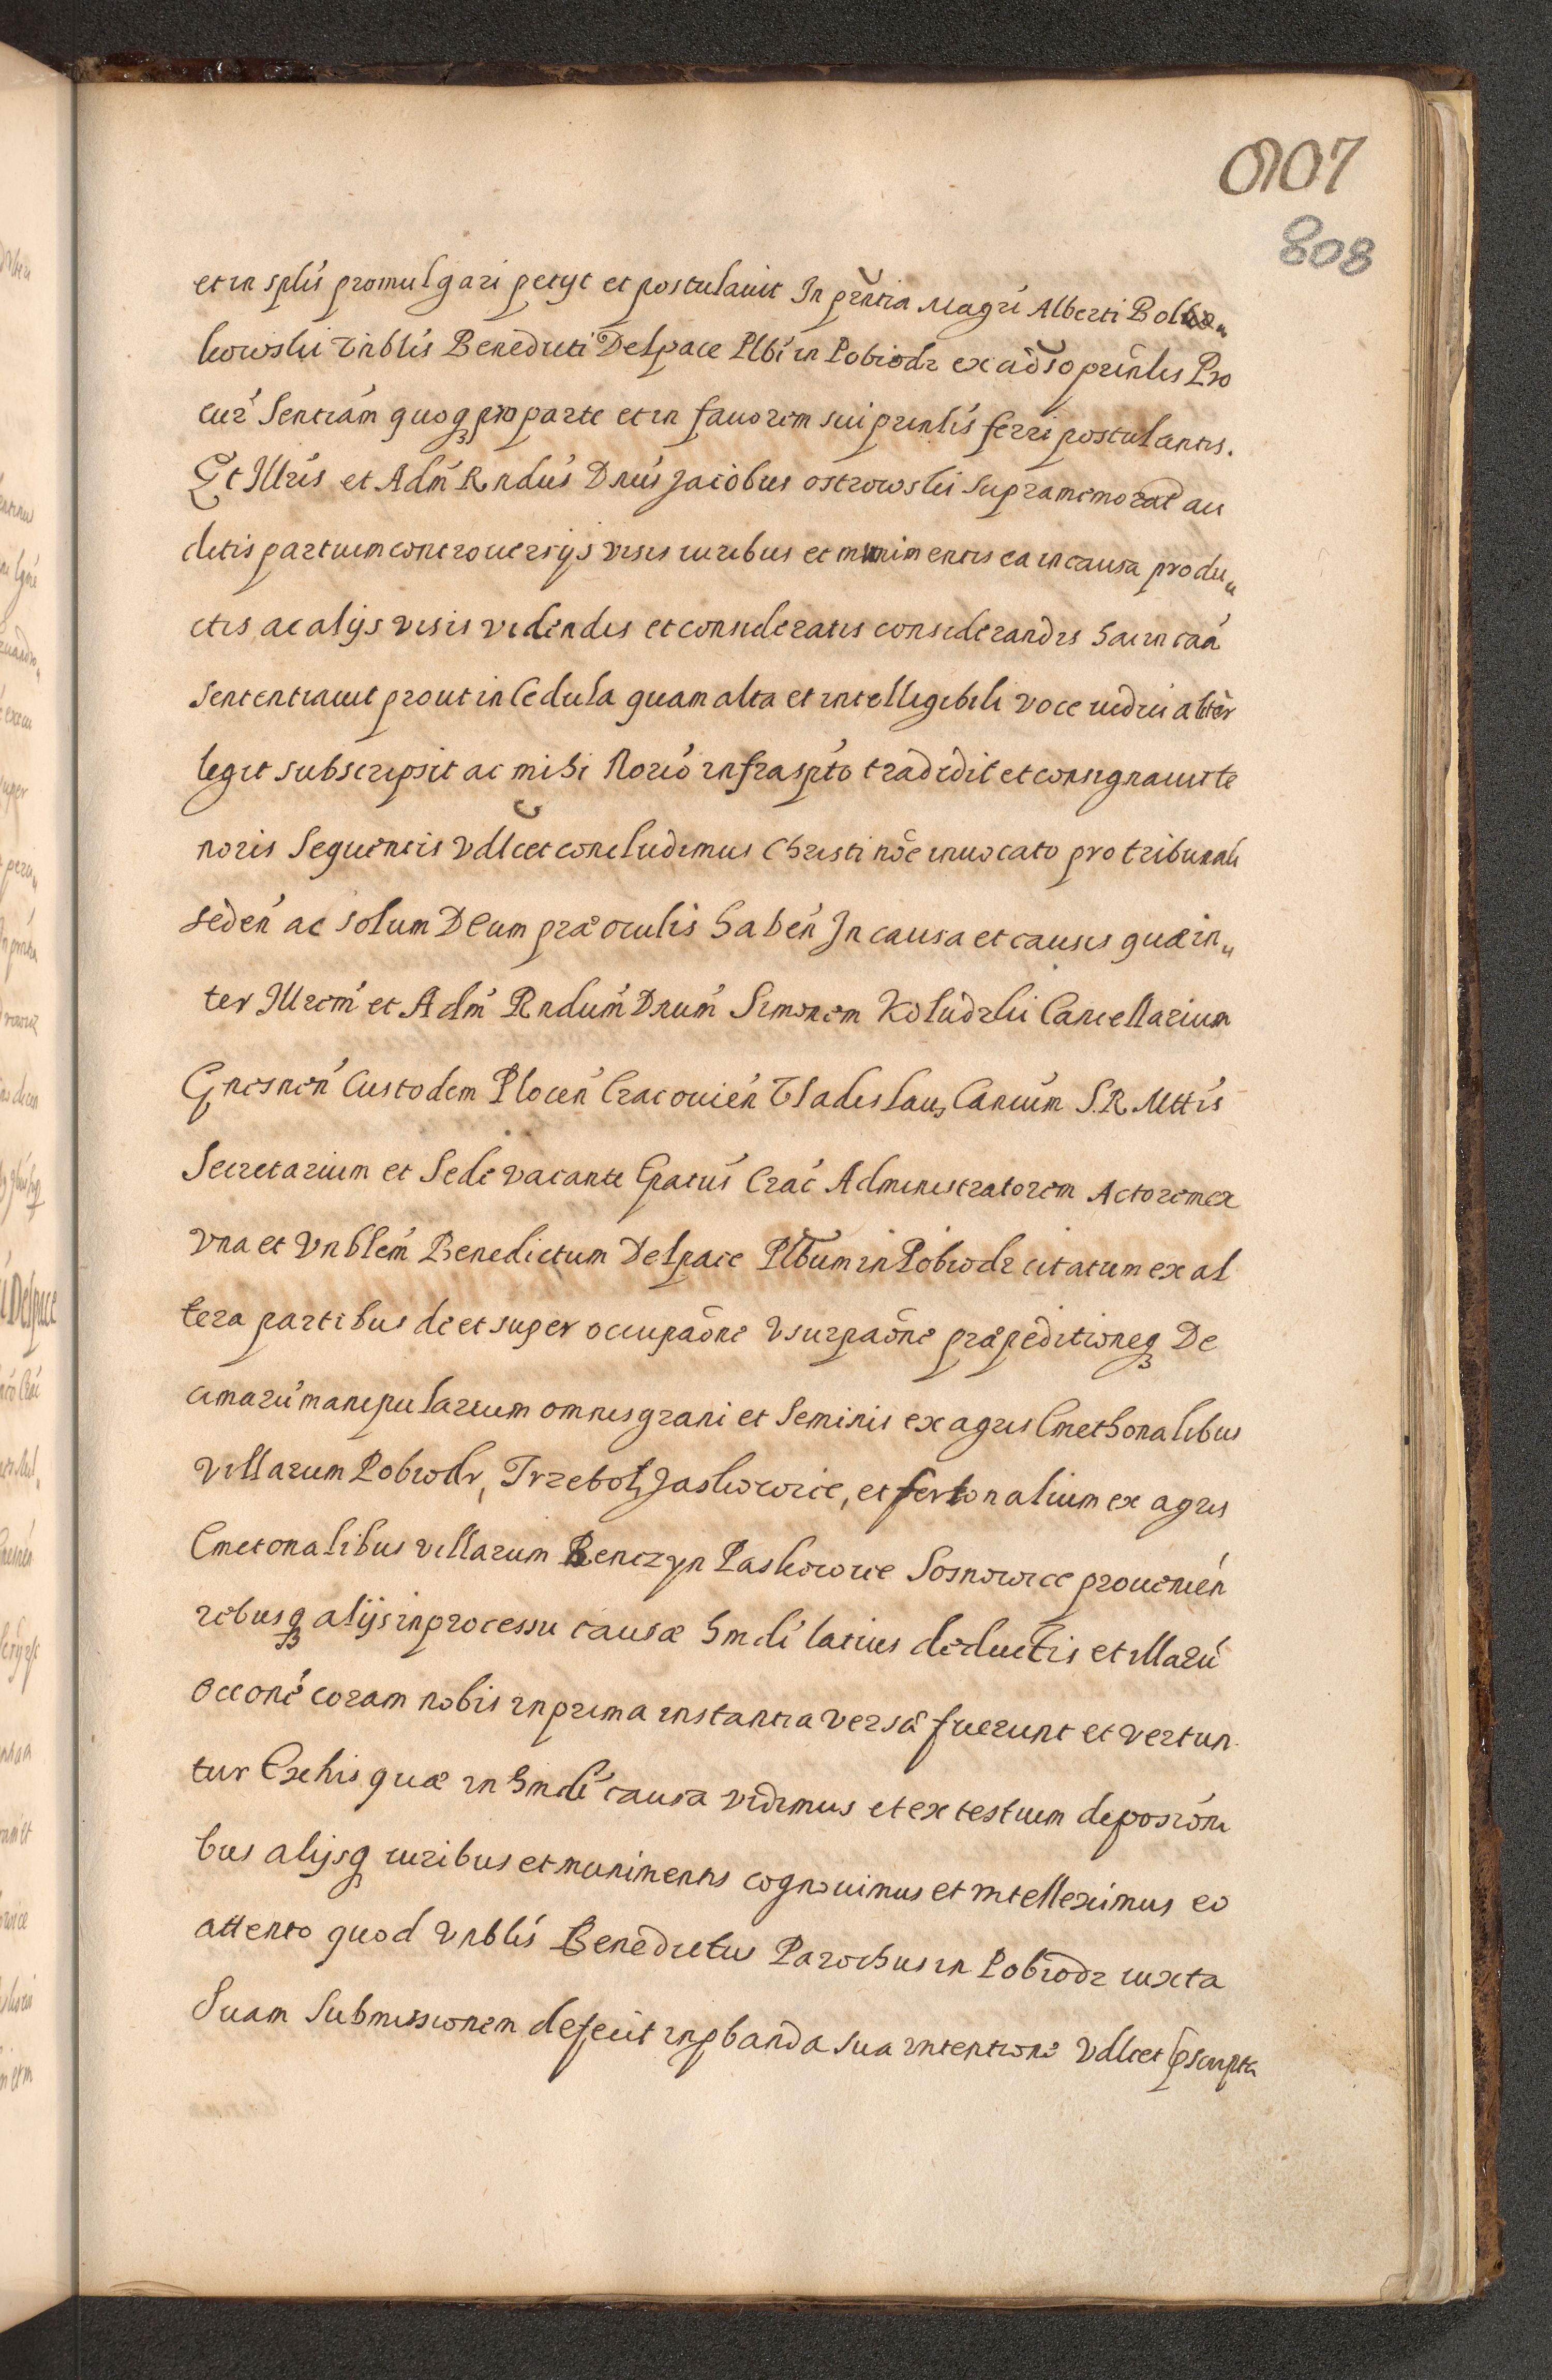 907
808
et in splis promulgari petyt et postulavit In pñtia Magri Alberti Bol
kowski Vnblis Benedicti Delpace Plbi in Pobiodr ex adso prinlis Pro
cur Sentiam quoq pro parte et in favorem sui prinlis ferri postulantis.
Et Illris et Adm Rndus Dnus Jacobus ostrowski supramemorat au
ditis partium controversijs visis iuribus et munimentis ea in causa produ„
ctis ac alijs visis videndis et consideratis considerandis hac in caã
sententiavit prout in Cedula quam alta et intelligibili voce iudicialiter
legit subscripsit ac mihi Norio infraspto tradidit et consignavit te
noris Sequentis vdlcet concludimus Christi nõe invocato pro tribunali
seden ac solum Deum præ oculis haben In causa et causis quæ in„
ter Illrem et Adm Rndum Dnum Simonem Koludzki Cancellarium
Gnesnen Custodem Plocen Cracovien Vladislau Canium S.R. Mttis
Secretarium et Sede vacante Epatus Crac Administratorem Actorem ex
vna et Vnblem Benedictum Delpace Plbum in Pobiodr citatum ex al
tera partibus de et super occupaõne vsurpaõne præpeditioneq De
cimaru manipularium omnis grani et Seminis ex agris Cmethonalibus
villarum Pobiodr, Trzebol, Jaskowice, et fertonalium ex agris
Cmetonalibus villarum Benczyn Paskowice Sosnowice provenien
rebusq alijs in processu causæ hmdi latius deductis et illaru
occone coram nobis in prima instantia versæ fuerunt et vertun
tur Ex his quæ in hmdi causa vidimus et ex testium deposioni
bus alijsq iuribus et munimentis cognovimus et intelleximus eo
attento quod Vnblis Benedictus Parochus in Pobiodr iuxta
Suam Submissionem defecit in pbanda sua intentione vdlicet pscripta